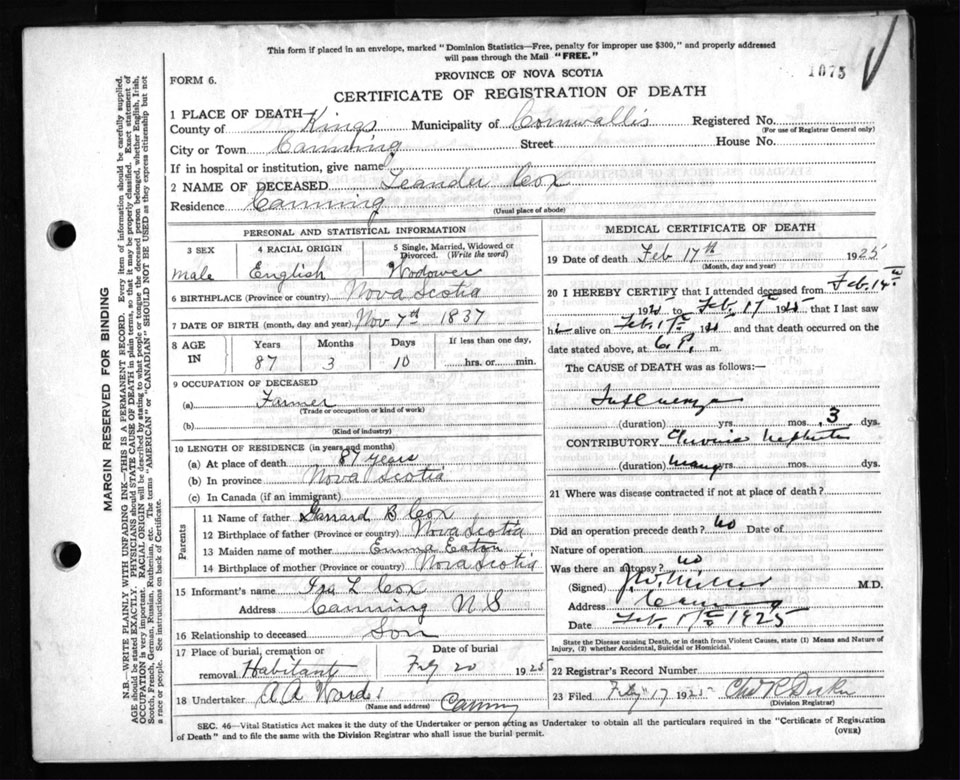 This form if placed in an envelope, marked "Dominion Statistics—Free, penalty for improper use $300," and properly addressed
will pass through the Mail "FREE."
FORM 6.
PROVINCE OF NOVA SCOTIA
1075
CERTIFICATE OF REGISTRATION OF DEATH
1 PLACE OF DEATH—
County of Kings Municipality of Cornwallis Registered No.
(For use of Registrar General only)
City or Town Canning Street House No.
If in hospital or institution, give name
2 NAME OF DECEASED Leander Cox
Residence Canning
(Usual place of abode)
PERSONAL AND STATISTICAL INFORMATION
3 SEX 4 RACIAL ORIGIN 5 Single, Married, Widowed or
Divorced. (Write the word)
male English Widower
6 BIRTHPLACE (Province or country) Nova Scotia
7 DATE OF BIRTH (month, day and year) Nov 7th 1837
8 AGE IN Years Months Days If less than one day,
87 3 10 hrs. or min.
9 OCCUPATION OF DECEASED
(a) Farmer
(Trade or occupation or kind of work)
(b)
(Kind of industry)
10 LENGTH OF RESIDENCE (in years and months)
(a) At place of death 87 years
(b) In province Nova Scotia
(c) In Canada (if an immigrant)
Parents
11 Name of father Garrard B Cox
12 Birthplace of father (Province or country) Nova Scotia
13 Maiden name of mother Emma Eaton
14 Birthplace of mother (Province or country) Nova Scotia
15 Informant's name Ira L Cox
Address Canning N S
16 Relationship to deceased Son
17 Place of burial, cremation or Date of burial
removal Habitant 20 1925
18 Undertaker A A Ward
(Name and address)
MEDICAL CERTIFICATE OF DEATH
19 Date of death Feb 17th 1925
(Month, day and year)
20 I HEREBY CERTIFY that I attended deceased from Feb. 14th
1925 to Feb. 17 1925 that I last saw
h alive on Feb. 17 and that death occurred on
date stated above, at 6 P. m.
The CAUSE of DEATH was as follows:—
Influenza
(duration) yrs. mos. 3 dys.
CONTRIBUTORY Chronic Nephritis
(duration) many yrs. mos. dys.
21 Where was disease contracted if not at place of death?
Did an operation precede death? no Date of
Nature of operation
Was there an autopsy? no
(Signed) J.W. Miller M.D.
Address Canning
Date Feb. 17 1925
State the Disease causing Death, or in death from Violent Causes, state (1) Means and Nature of
Injury, (2) whether Accidental, Suicidal or Homicidal.
22 Registrar's Record Number
23 Filed 17 1925
(Division Registrar)
SEC. 46—Vital Statistics Act makes it the duty of the Undertaker or person acting as Undertaker to obtain all the particulars required in the "Certificate of Registration
of Death" and to file the same with the Division Registrar who shall issue the burial permit.
(OVER)
MARGIN RESERVED FOR BINDING
N.B.—WRITE PLAINLY WITH UNFADING INK—THIS IS A PERMANENT RECORD. Every item of information should be carefully supplied.
AGE should be stated EXACTLY. PHYSICIANS should STATE CAUSE OF DEATH in plain terms, so that it may be properly classified. Exact statement of
OCCUPATION is very important. RACIAL ORIGIN will be described by stating to what people or tongue the deceased person belonged, whether English, Irish,
Scotch, French, German, Russian, Ruthenian, etc. The terms "AMERICAN" or "CANADIAN" SHOULD NOT BE USED as they express citizenship but not
a race or people. See instructions on back of Certificate.